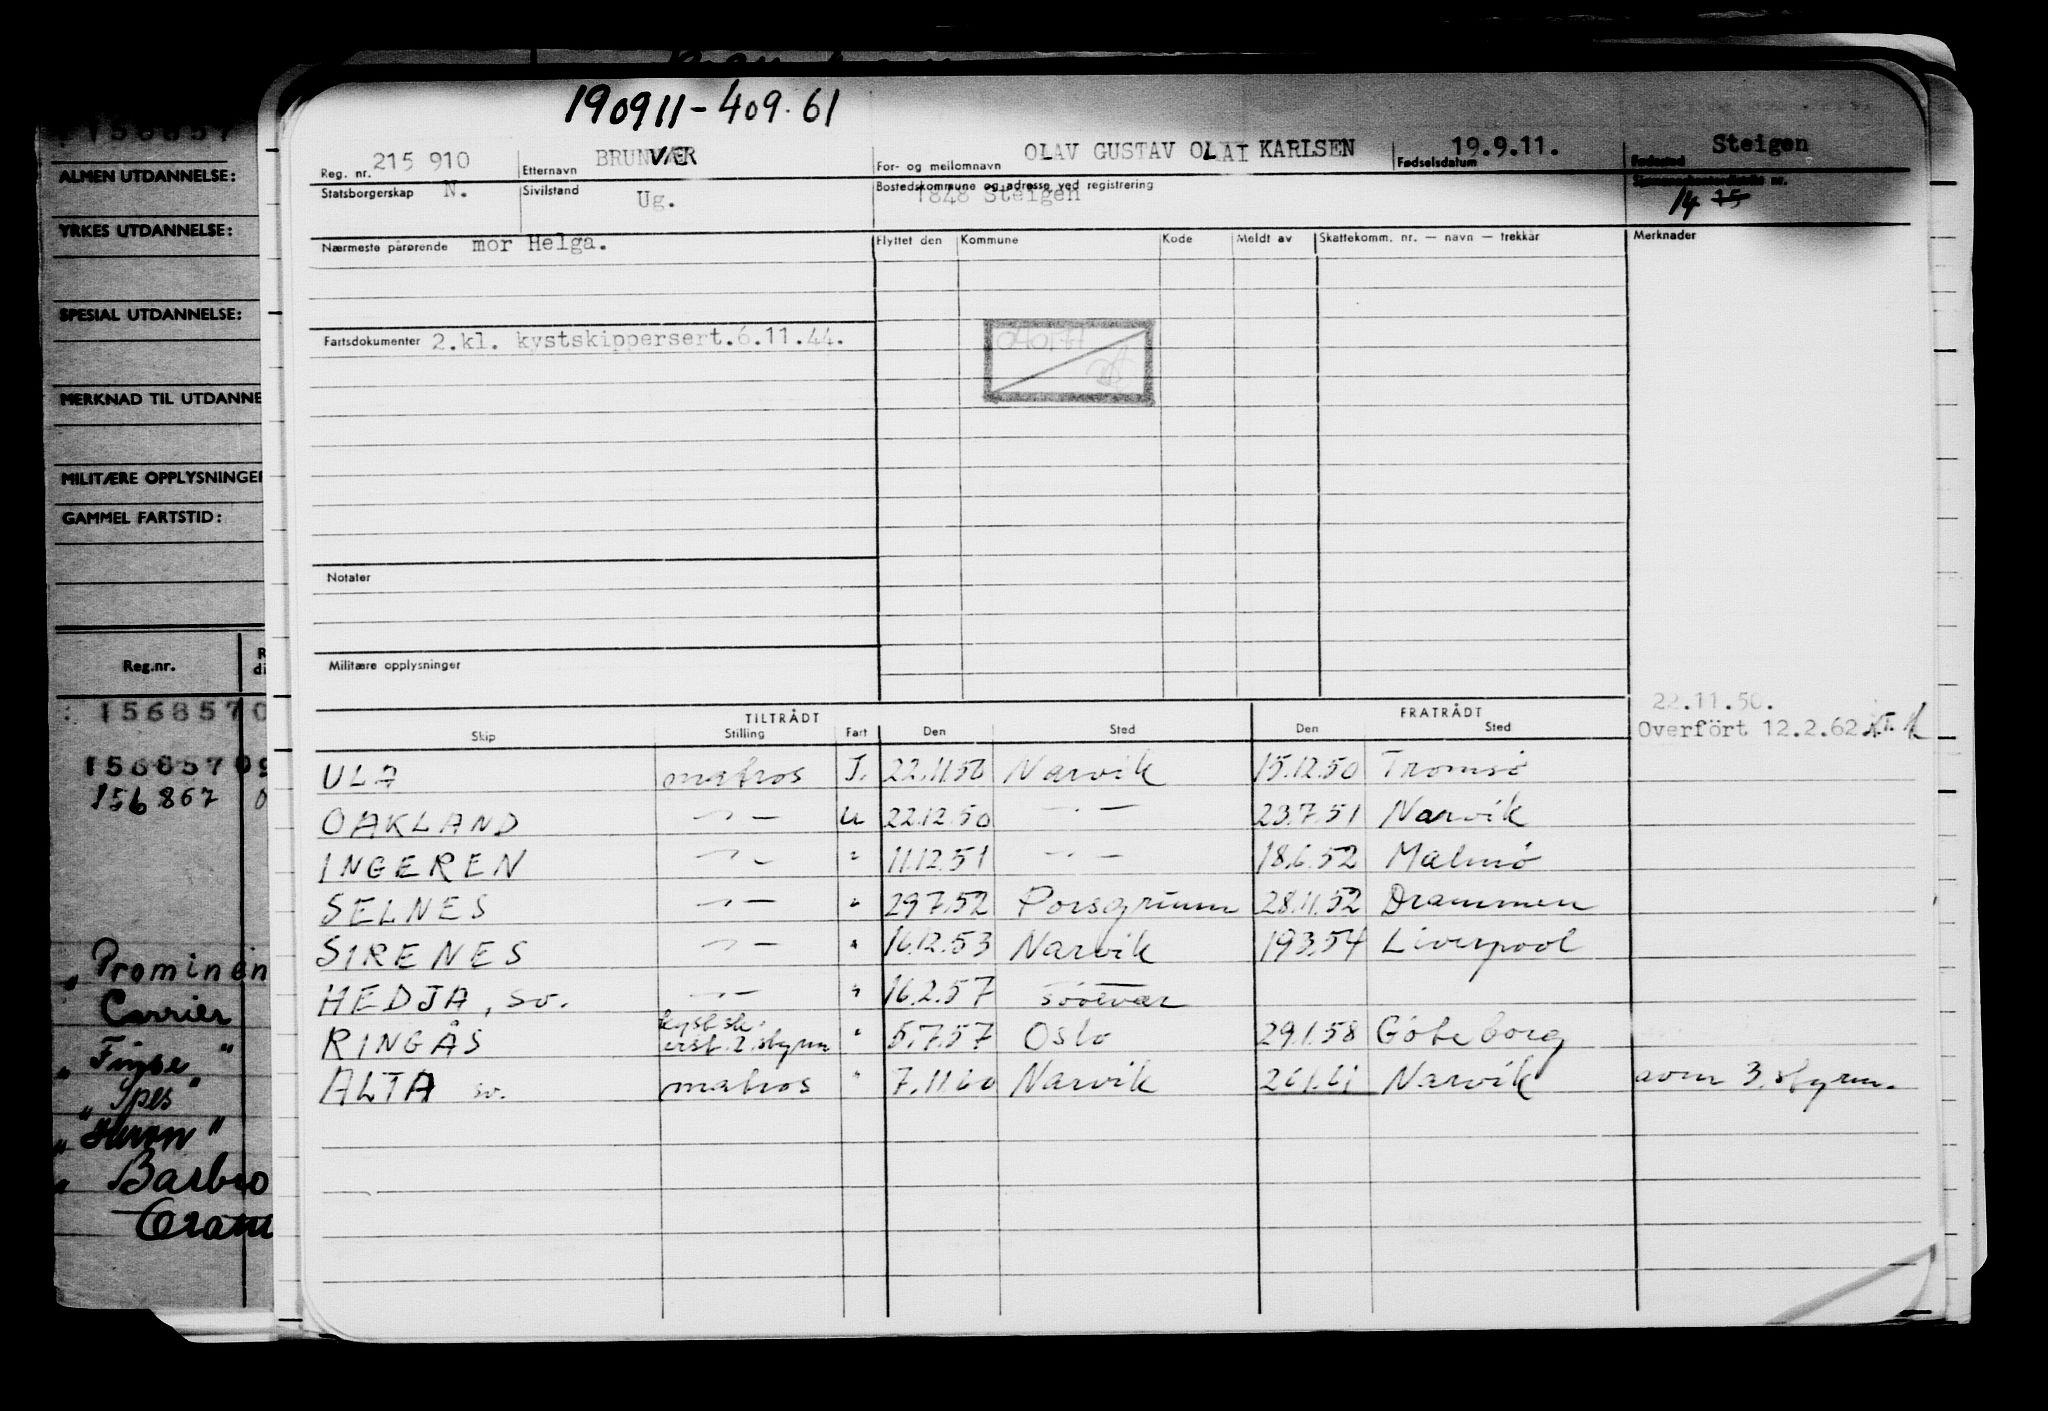 190911-409.61
Reg. nr. 215 910 Etternavn BRUNVÆR For- og mellomnavn OLAV GUSTAV OLAI KARLSEN Fødselsdatum 19.9.11. Fødested Steigen
Statsborgerskap N. Sivilstand Ug. Bostedskommune og adresse ved registrering 1848 Steigen 14 15
Nærmeste pårørende mor Helga. Flyttet den Kommune Kode Meldt av Skattekomm. nr. — navn — trekkår Merknader
Fartsdokumenter 2.kl. kystskippersert.6.11.44.
Notater
Militære opplysninger
22.11.50.
TILTRÅDT FRATRÅDT
Skip Stilling Fart Den Sted Den Sted Overført 12.2.62
ULA matros I. 22.11.50 Narvik 15.12.50 Tromsø
OAKLAND —"— U 22.12.50 —"— 23.7.51 Narvik
INGEREN —"— " 11.12.51 —"— 18.6.52 Malmö
SELNES —"— " 29.7.52 Porsgrunn 28.11.52 Drammen
SIRENES —"— " 16.12.53 Narvik 19.3.54 Liverpool
HEDJA, sv. —"— " 16.2.57
RINGÅS 2. styrm " 5.7.57 Oslo 29.1.58 Göteborg
ALTA sv. matros " 7.11.60 Narvik 26.1.61 Narvik avm 3. styrm.
156857
ALMEN UTDANNELSE:
YRKES UTDANNELSE:
SPESIAL UTDANNELSE:
MERKNAD TIL UTDANNE
MILITÆRE OPPLYSNINGER
GAMMEL FARTSTID:
Reg.nr. R
di
: 1568570
15685709
156867 0
" Prominen
Carrier
" Finse "
" Spes "
" Heron "
" Barbro